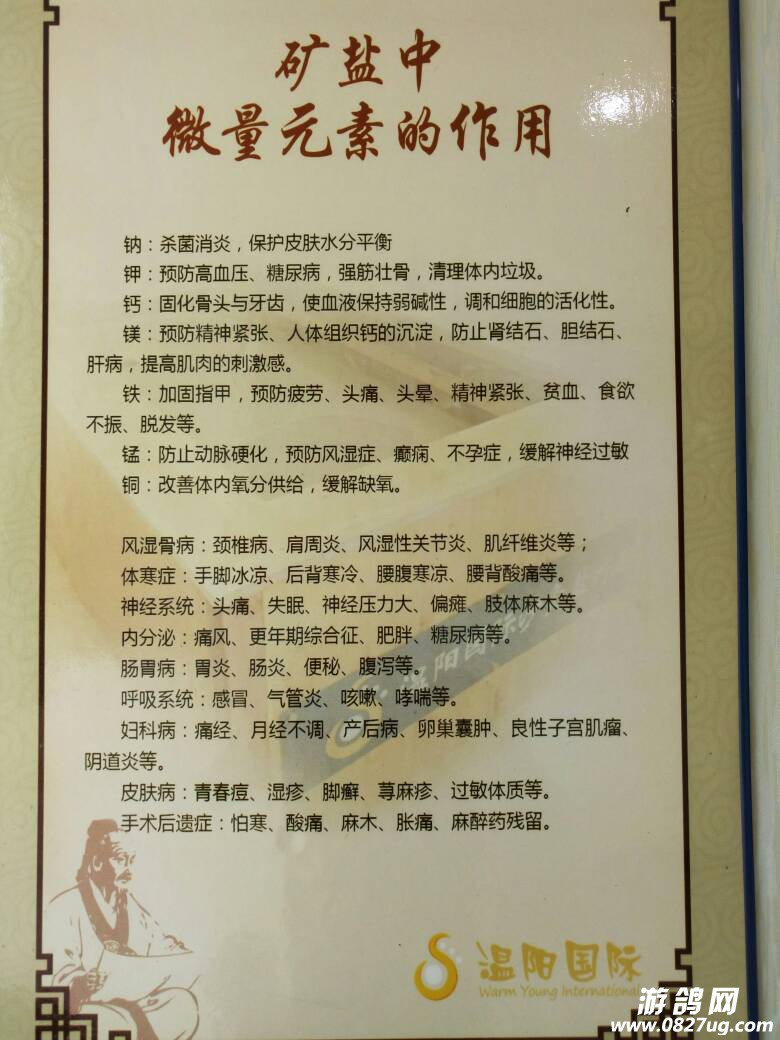 矿盐中
微量元素的作用
钠：杀菌消炎，保护皮肤水分平衡
钾：预防高血压、糖尿病，强筋壮骨，清理体内垃圾。
钙：固化骨头与牙齿，使血液保持弱碱性，调和细胞的活化性。
镁：预防精神紧张、人体组织钙的沉淀，防止肾结石、胆结石、
肝病，提高肌肉的刺激感。
铁：加固指甲，预防疲劳、头痛、头晕、精神紧张、贫血、食欲
不振、脱发等。
锰：防止动脉硬化，预防风湿症、癫痫、不孕症，缓解神经过敏
铜：改善体内氧分供给，缓解缺氧。
风湿骨病：颈椎病、肩周炎、风湿性关节炎、肌纤维炎等；
体寒症：手脚冰凉、后背寒冷、腰腹寒凉、腰背酸痛等。
神经系统：头痛、失眠、神经压力大、偏瘫、肢体麻木等。
内分泌：痛风、更年期综合征、肥胖、糖尿病等。
肠胃病：胃炎、肠炎、便秘、腹泻等。
呼吸系统：感冒、气管炎、咳嗽、哮喘等。
妇科病：痛经、月经不调、产后病、卵巢囊肿、良性子宫肌瘤、
阴道炎等。
皮肤病：青春痘、湿疹、脚癣、荨麻疹、过敏体质等。
手术后遗症：怕寒、酸痛、麻木、胀痛、麻醉药残留。
温阳国际
Warm Young International
游鸽网
www.0827ug.com